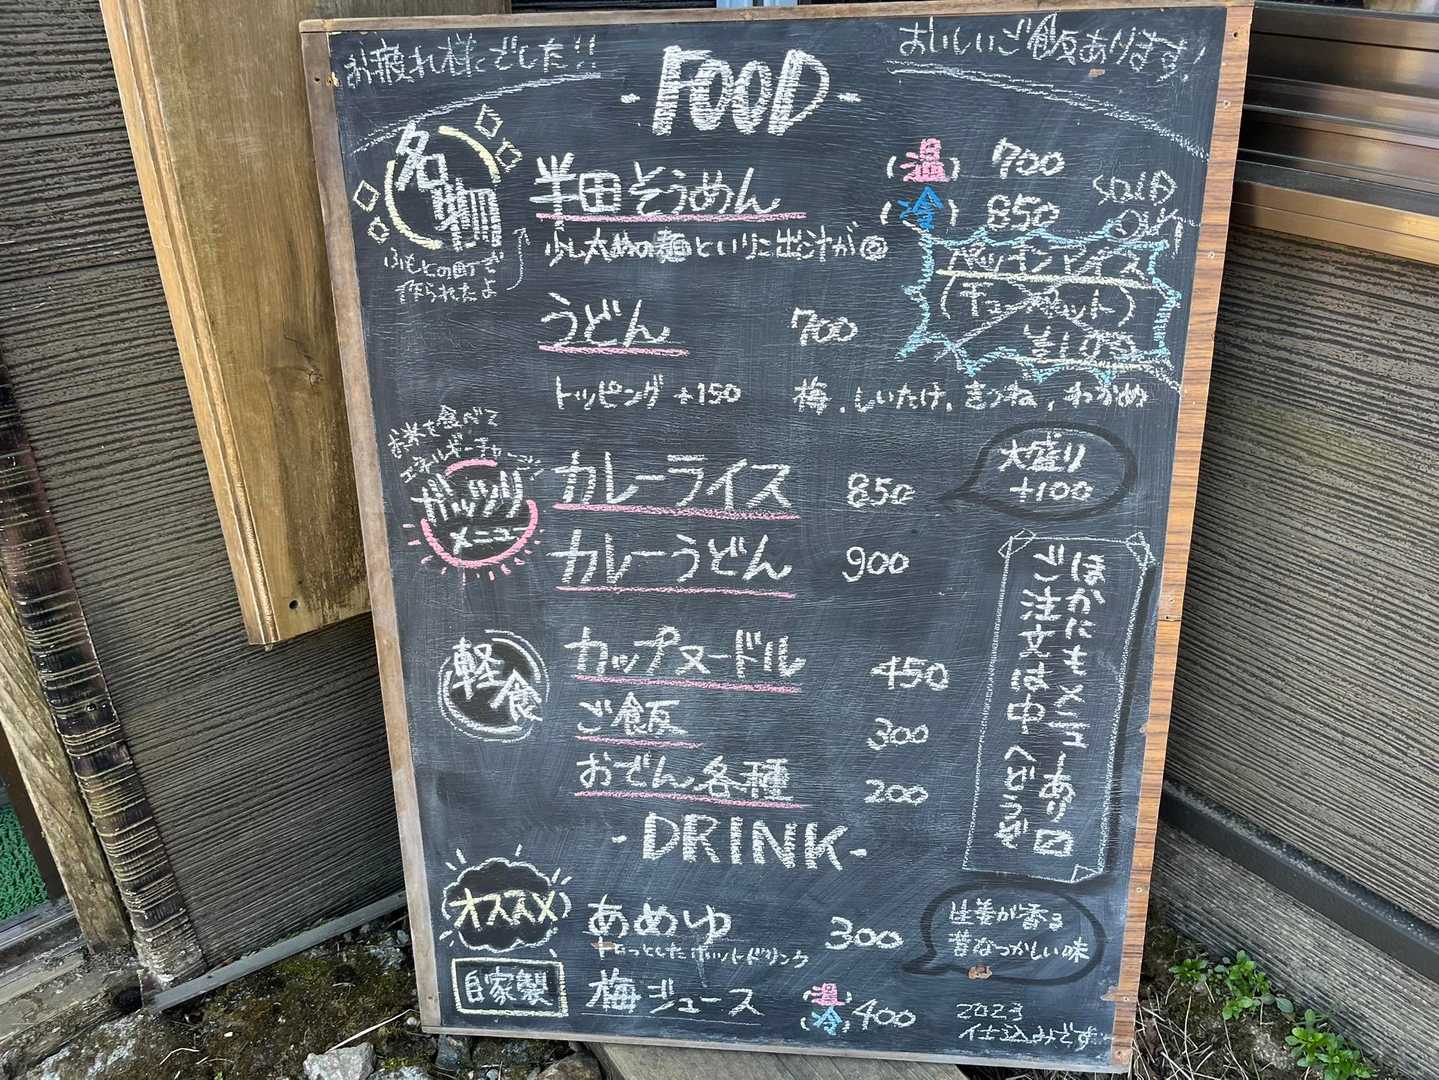 お疲れ様でした!!
おいしいご飯あります!
-FOOD-
名物
ふもとの町で
作られたよ
半田そうめん
(温) 700
(冷) 850
少し太めの麺といりこ出汁が◎
うどん 700
トッピング +150 梅、しいたけ、きつね、わかめ
お米を食べて
エネルギーチャージ
ガッツリ
メニュー
カレーライス 850
大盛り
+100
カレーうどん 900
ほかにもメニューあり〼
ご注文は中へどうぞ
軽食
カップヌードル 450
ご飯 300
おでん各種 200
-DRINK-
オススメ
あめゆ 300
トロっとしたホットドリンク
生姜が香る
昔なつかしい味
自家製
梅ジュース 温 冷 400
2023
仕込みです